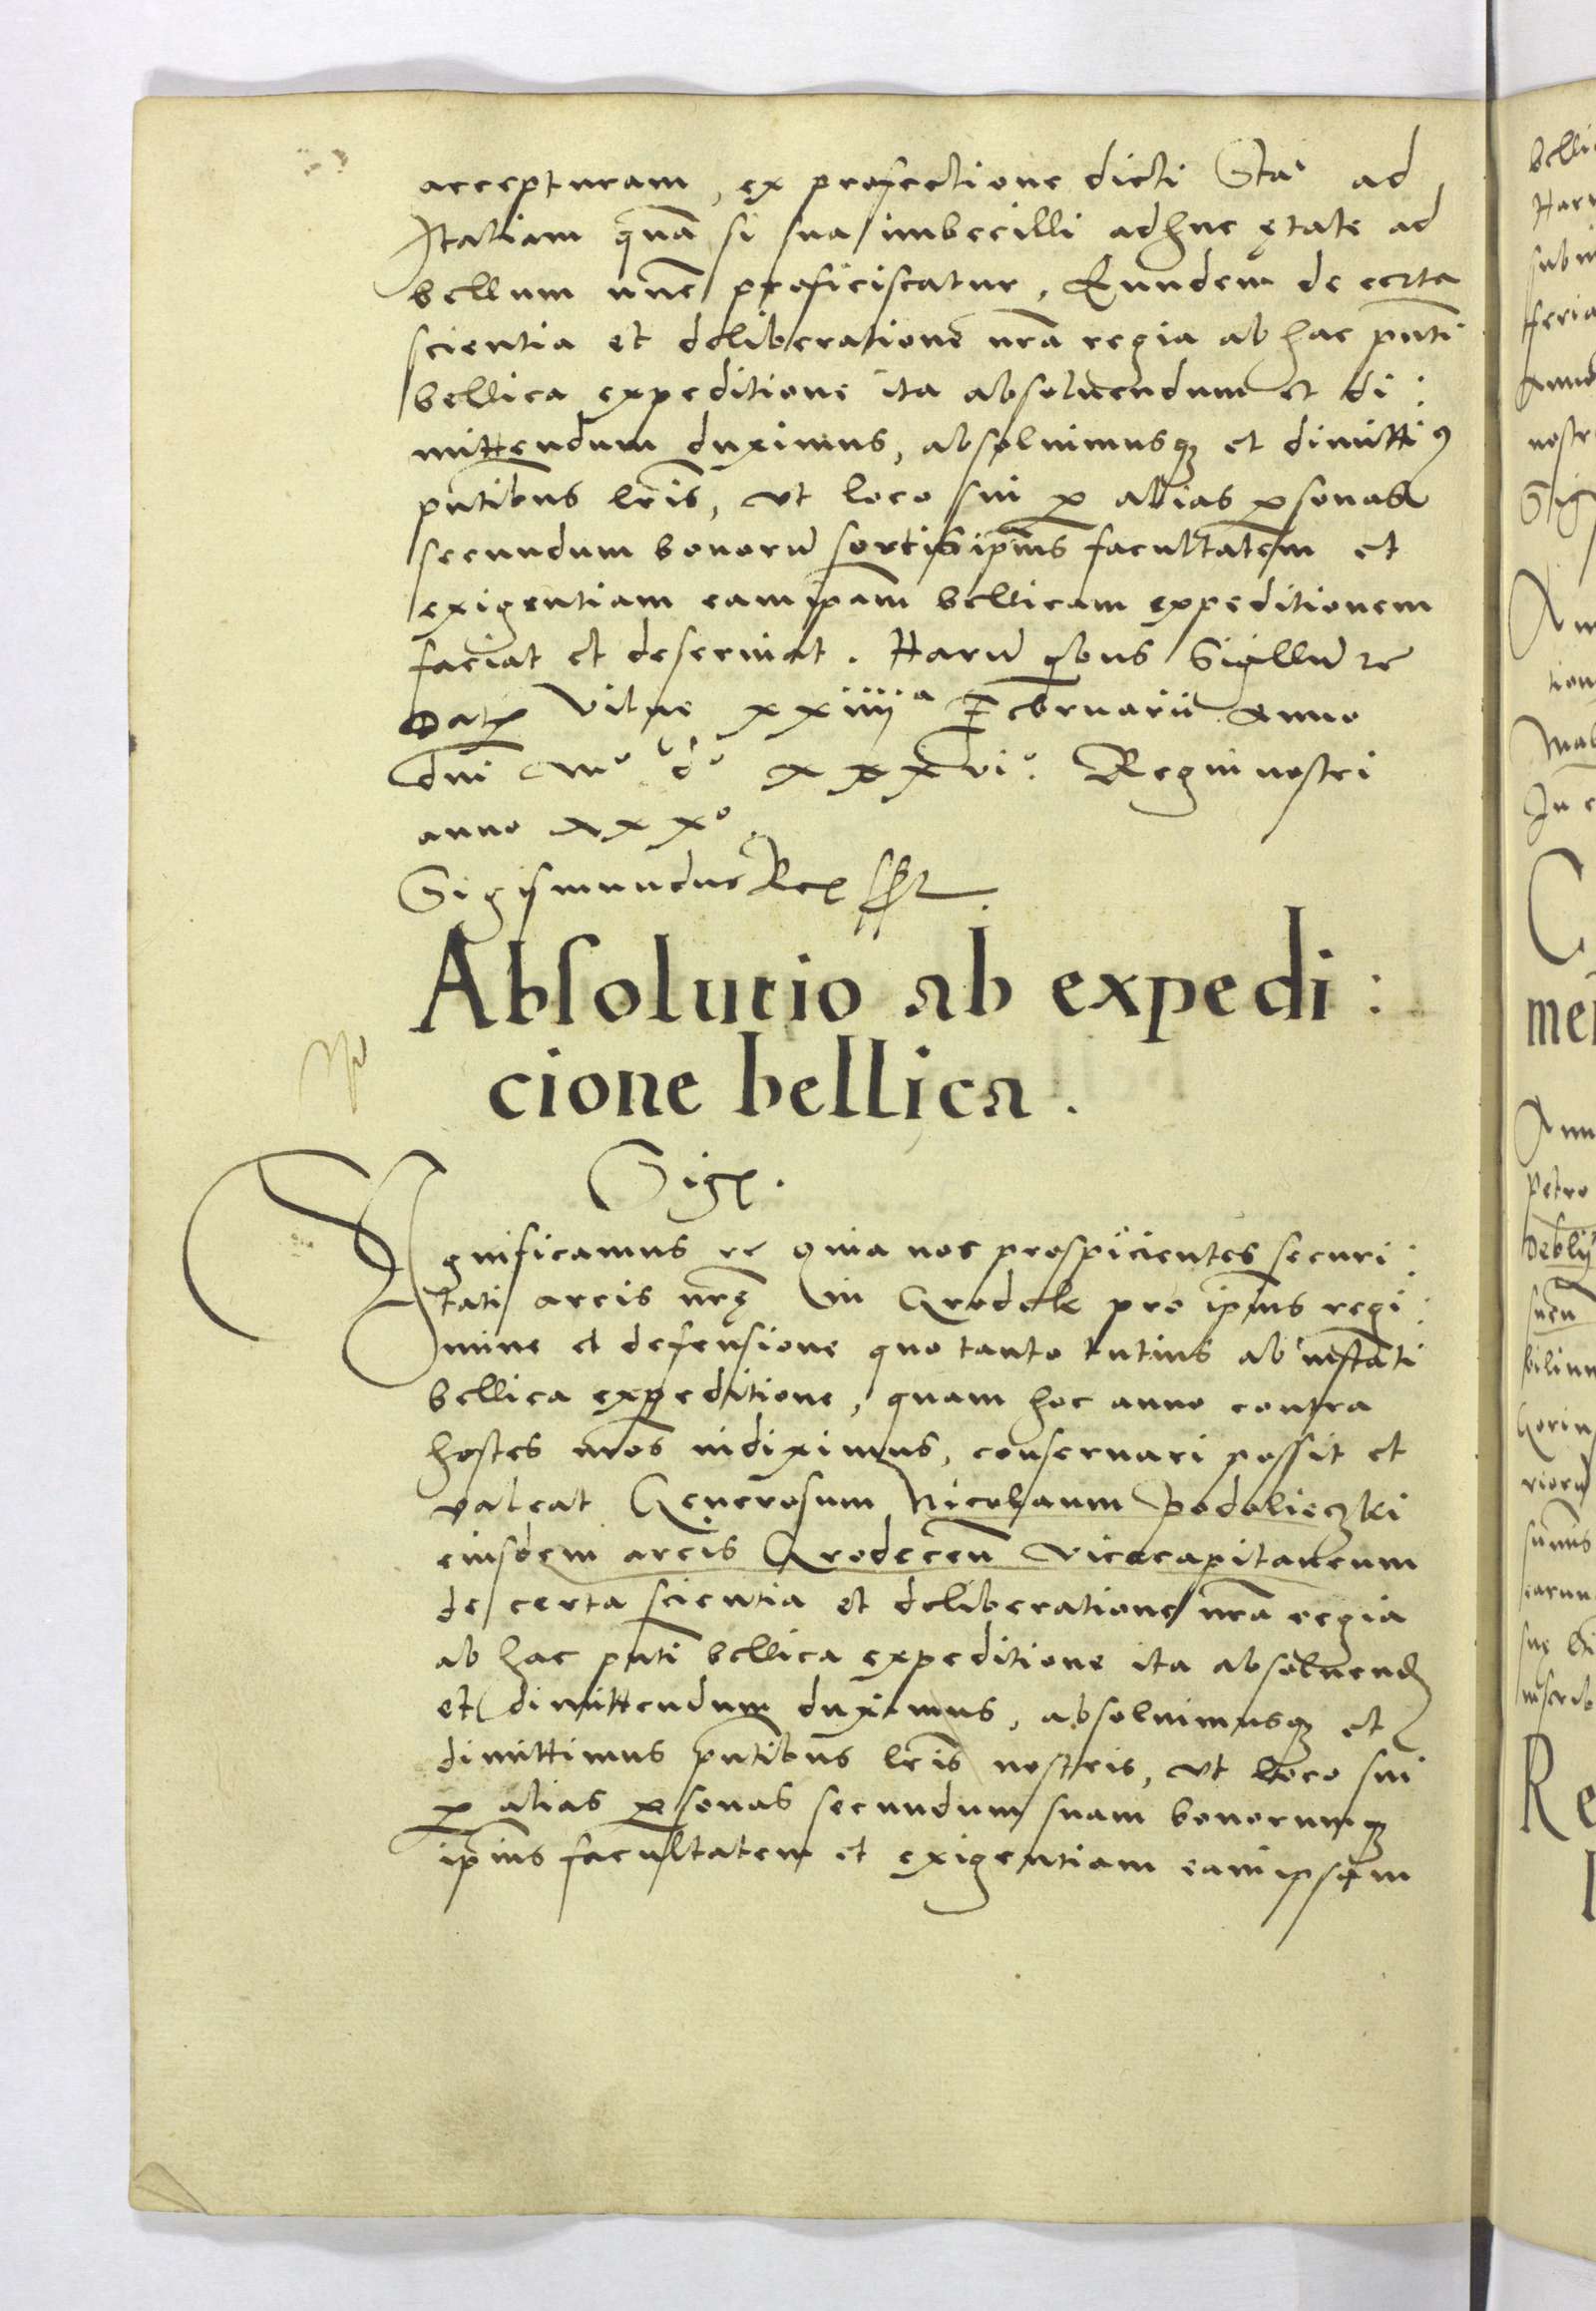 accepturam, ex profectione dicti Sta. ad
Italiam quā si sua imbecilli adhuc ętate ad
bellum nunc proficiscatur, Eundem de certa
scientia et deliberatione nrā regia ab hac pnti
bellica expeditione ita absoluendum et di:
mittendum duximus, absoluimusq et dimitti9
pntibus lris, vt loco sui p alias psonas
secundum bonorū sortis ipius facultatem et
exigentiam eam ipam bellicam expeditionem
faciat et deseruiat. Harū qbus Sigillū rc
Datę Vilne xxiiii a Februarii Anno
dni Mo do xxxvio. Regni nostri
anno xxxo.
Sigismundus Rex sst
Absolutio ab expedi:
cione bellica.
Sigę.
Significamus rc quia nos prospicientes securi:
tati arcis nrę in Grodek pro ipius regi:
mine et defensione quo tanto tutius ab instāti
bellica expeditione, quam hoc anno contra
hostes nros indiximus, conseruari possit et
valeat Generosum Nicolaum Podolieczki
eiusdem arcis Grodecen̄ Vicecapitaneum
de certa scientia et deliberatione nrā regia
ab hac pnti bellica expeditione ita absoluend
et dimittendum duximus, absoluimusq et
dimittimus pntibus lris nostris, vt loco sui
p alias psonas secundum suam bonorumq
ipius facultatem et exigentiam eam ipsam